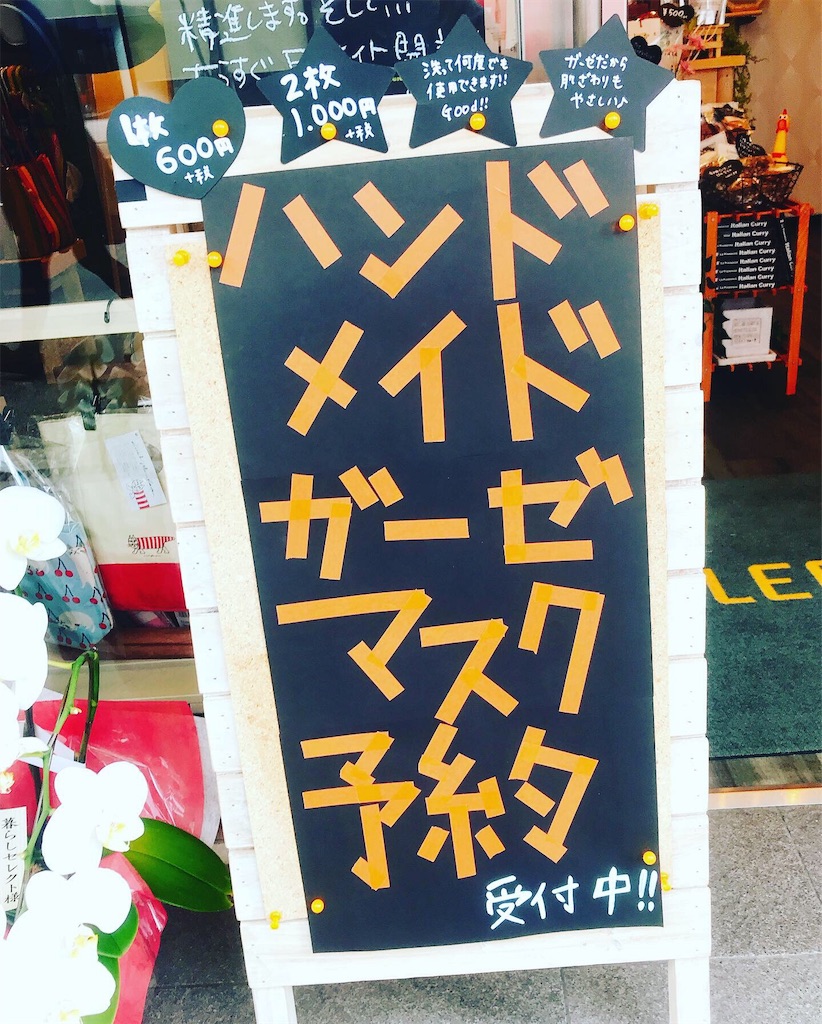 精進します。そして、
1枚
600円
+税
2枚
1.000円
+税
洗って何度でも
使用できます!!
Good!!
ガーゼだから
肌ざわりも
やさしい♪
ハンド
メイド
ガーゼ
マスク
予約
受付中!!
¥500
Italian Curry
Italian Curry
Italian Curry
Italian Curry
Italian Curry
Italian Curry
Italian Curry
LEC
暮らしセレクト様